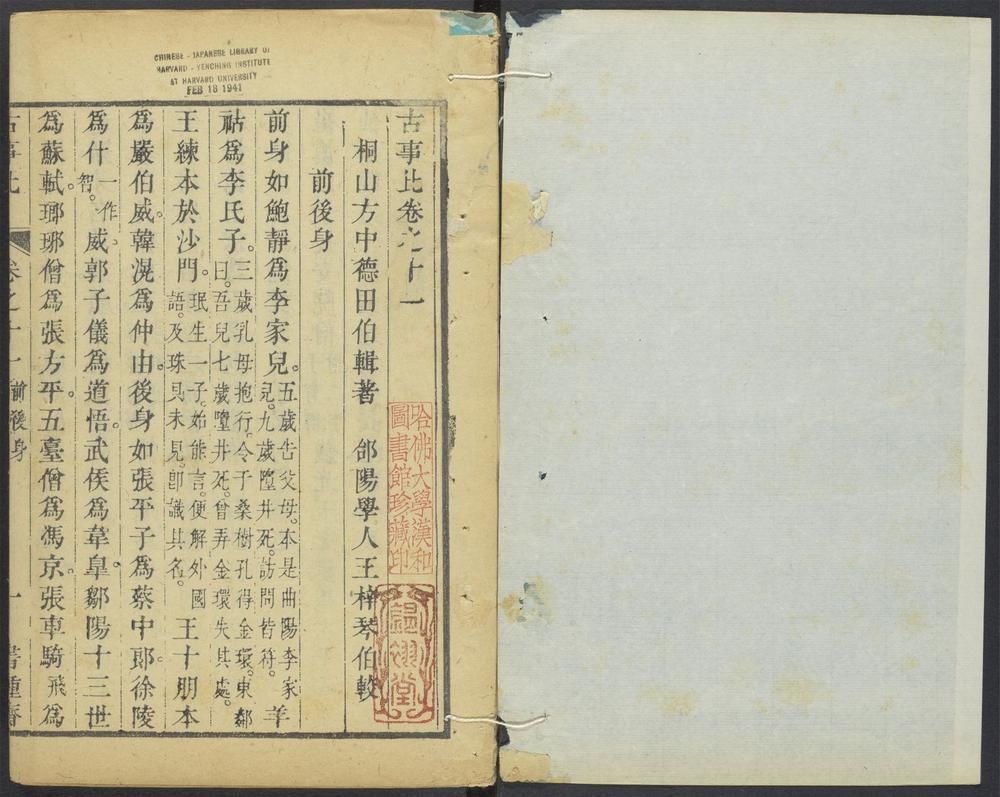 CHINESE - JAPANESE LIBRARY OF
HARVARD - YENCHING INSTITUTE
AT HARVARD UNIVERSITY
FEB 18 1941
古事比卷之十一
桐山方中德田伯輯著 郃陽學人王梓琴伯較
哈佛大學漢和
圖書館珍藏印
堂
前後身
前身如鮑靜爲李家兒。五歲告父母。本是曲陽李家兒。九歲墮井死。訪問皆符。羊
祜爲李氏子。三歲乳母抱行。令于桑樹孔得金環。東鄰曰。吾兒七歲墮井死。曾弄金環失其處。
王練本於沙門。珉生一子。始能言。便解外國語。及珠具未見。卽識其名。王十朋本
爲嚴伯威。韓滉爲仲由。後身如張平子爲蔡中郎。徐陵
爲什一作智。威。郭子儀爲道悟。武侯爲韋皐。鄒陽十三世
爲蘇軾。瑯琊僧爲張方平。五臺僧爲馮京。張車騎飛爲
古事比 卷之十一 前後身 一